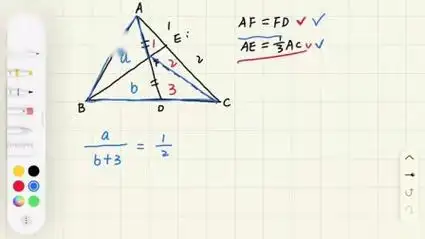 A
1
AF = FD ✓ ✓
E
AE = 1/3 AC ✓ ✓
1
a
2
2
b
3
B
D
C
a/(b+3) = 1/2